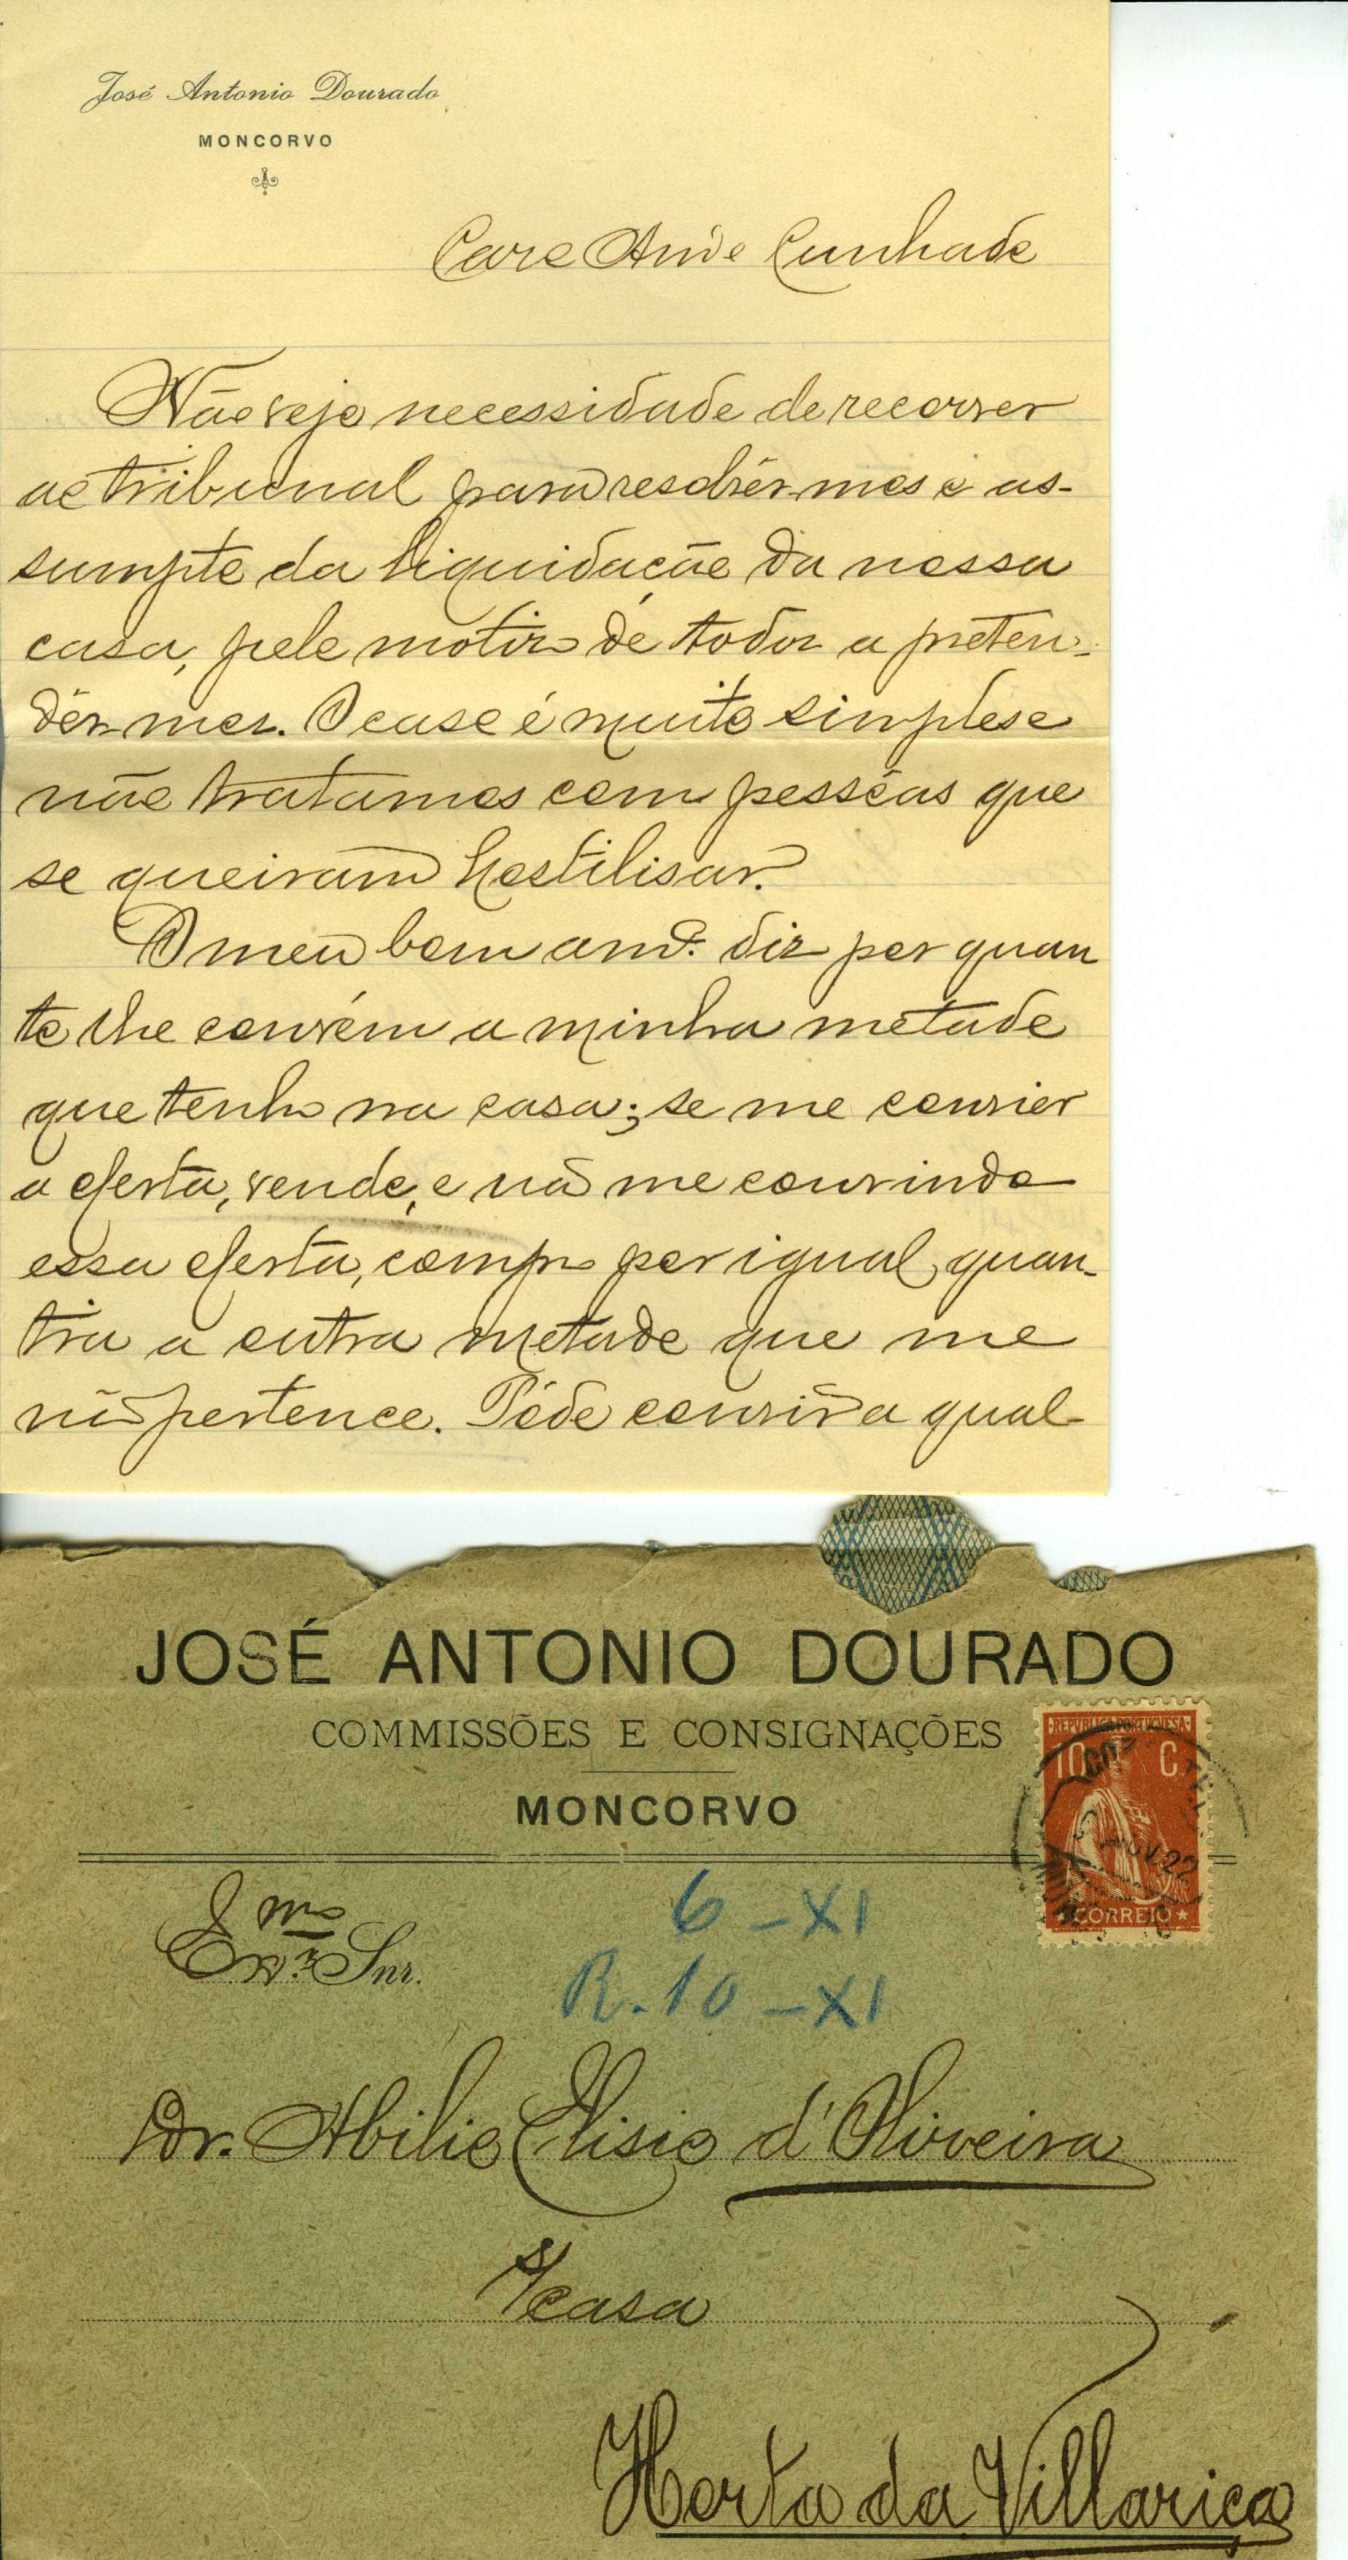 José Antonio Dourado
MONCORVO
Caro Amº e Cunhado
Não vejo necessidade de recorrer
ao tribunal para resolvêr-mos o as-
sumpto da liquidação da nossa
casa, pelo motivo de todos a preten-
dêr-mos. O caso é muito simples e
não tratamos com pessôas que
se queiram hostilisar.
O meu bom amº. diz por quan
to lhe convém a minha metade
que tenho na casa; se me convier
a oferta, vendo, e não me convindo
essa oferta, compro por igual quan-
tia a outra metade que me
não pertence. Póde convir a qual-
JOSÉ ANTONIO DOURADO
COMMISSÕES E CONSIGNAÇÕES
MONCORVO
REPUBLICA PORTUGUESA
10 C.
NOV 22
CORREIO
6-XI
R. 10-XI
Exmo Snr.
Dr. Abilio Elisio d'Oliveira
S/casa
Horta da Villariça